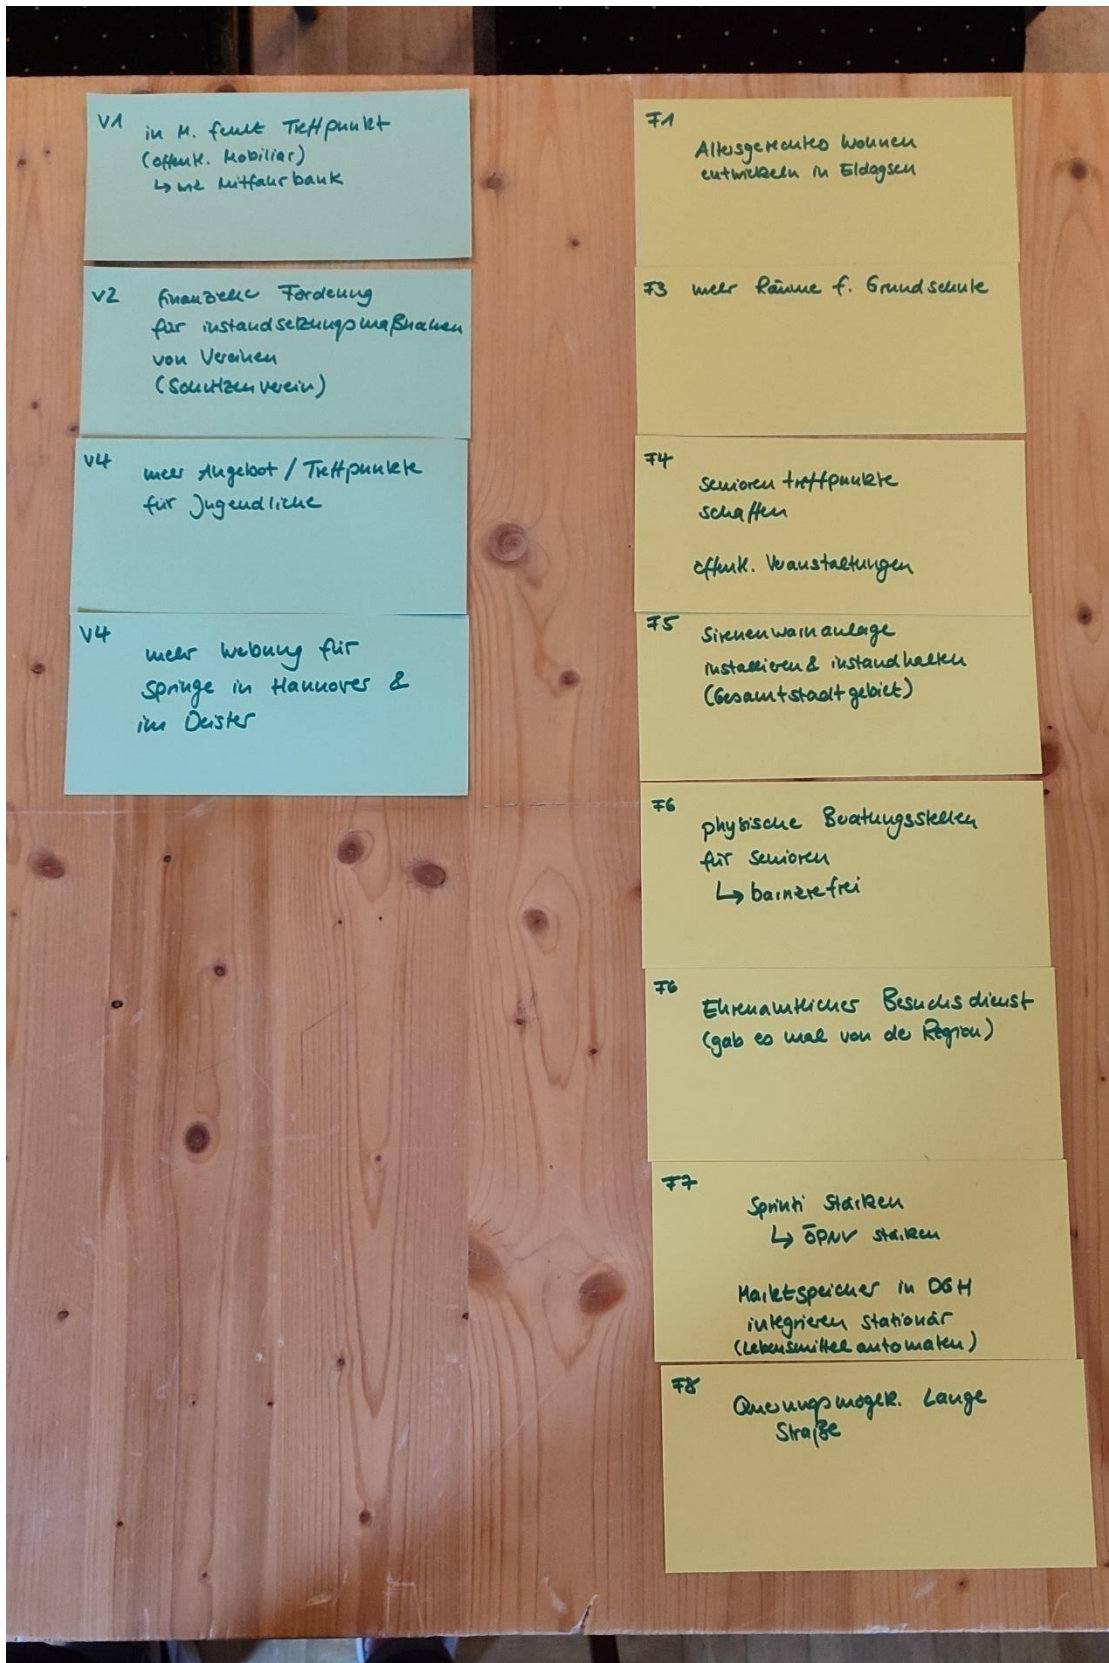 V1
in M. fehlt Treffpunkt
(öffentl. Mobiliar)
↳ wie Mitfahrbank
V2
finanzielle Förderung
für instandsetzungsmaßnahmen
von Vereinen
(Schützenverein)
V4
mehr Angebot / Treffpunkte
für Jugendliche
V4
mehr Webung für
Springe in Hannover &
im Deister
F1
Altersgerechtes Wohnen
entwickeln in Eldagsen
F3 mehr Räume f. Grundschule
F4
seniorentreffpunkte
schaffen
öffentl. Veranstaltungen
F5
Sirenenwarnanlage
installieren & instandhalten
(Gesamtstadtgebiet)
F6
physische Beratungsstellen
für senioren
↳ barrierefrei
F6
Ehrenamtlicher Besuchsdienst
(gab es mal von der Region)
F7
Sprinti stärken
↳ ÖPNV stärken
Marktspeicher in DGH
integrieren stationär
(Lebensmittelautomaten)
F8
Querungsmöglk. Lange
Straße